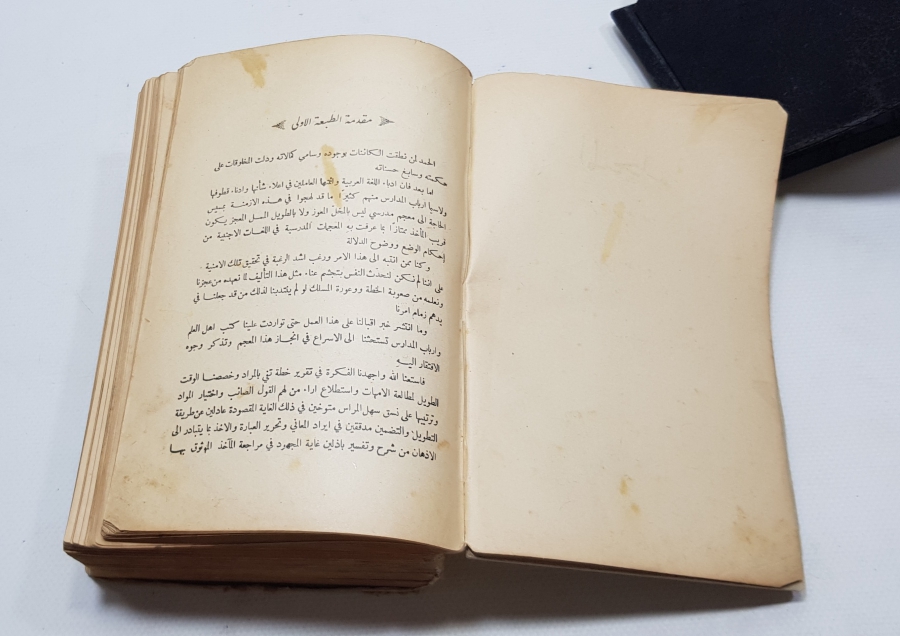 مقدمة الطبعة الاولى
الحمد لمن نطقت الكائنات بوجوده وسامي كمالاته ودلت المخلوقات على
حكمته وسابغ حسناته
اما بعد فان ادباء اللغة العربية وائمتها العاملين في اعلاء شأنها وادناء قطوفها
ولاسيما ارباب المدارس منهم كثيرًا ما قد لهجوا في هذه الازمنة بمسيس
الحاجة الى معجم مدرسي ليس بالمخل العوز ولا بالطويل الممل المعجز يكون
قريب المأخذ ممتازًا بما عرفت به المعجمات المدرسية في اللغات الاجنبية من
إحكام الوضع ووضوح الدلالة
وكنا ممن انتبه الى هذا الامر ورغب اشد الرغبة في تحقيق تلك الامنية
على اننا لم نكن لتحدثنا النفس بتجشم عناء مثل هذا التأليف لما نعهده من عجزنا
ونعلمه من صعوبة الخطة ووعورة المسلك لو لم ينتدبنا لذلك من قد جعلنا في
يدهم زمام امرنا
وما انتشر خبر اقبالنا على هذا العمل حتى تواردت علينا كتب اهل العلم
وارباب المدارس تستحثنا الى الاسراع في انجاز هذا المعجم وتذكر وجوه
الافتقار اليه
فاستعنا الله واجهدنا الفكرة في تقرير خطة تفي بالمراد وخصصنا الوقت
الطويل لمطالعة الامهات واستطلاع اراء من لهم القول الصائب واختيار المواد
وترتيبها على نسق سهل المراس متوخين في ذلك الغاية المقصودة عادلين عن طريقة
التطويل والتضمين مدققين في ايراد المعاني وتحرير العبارة والاخذ بما يتبادر الى
الاذهان من شرح وتفسير باذلين غاية المجهود في مراجعة المآخذ الموثوق بها